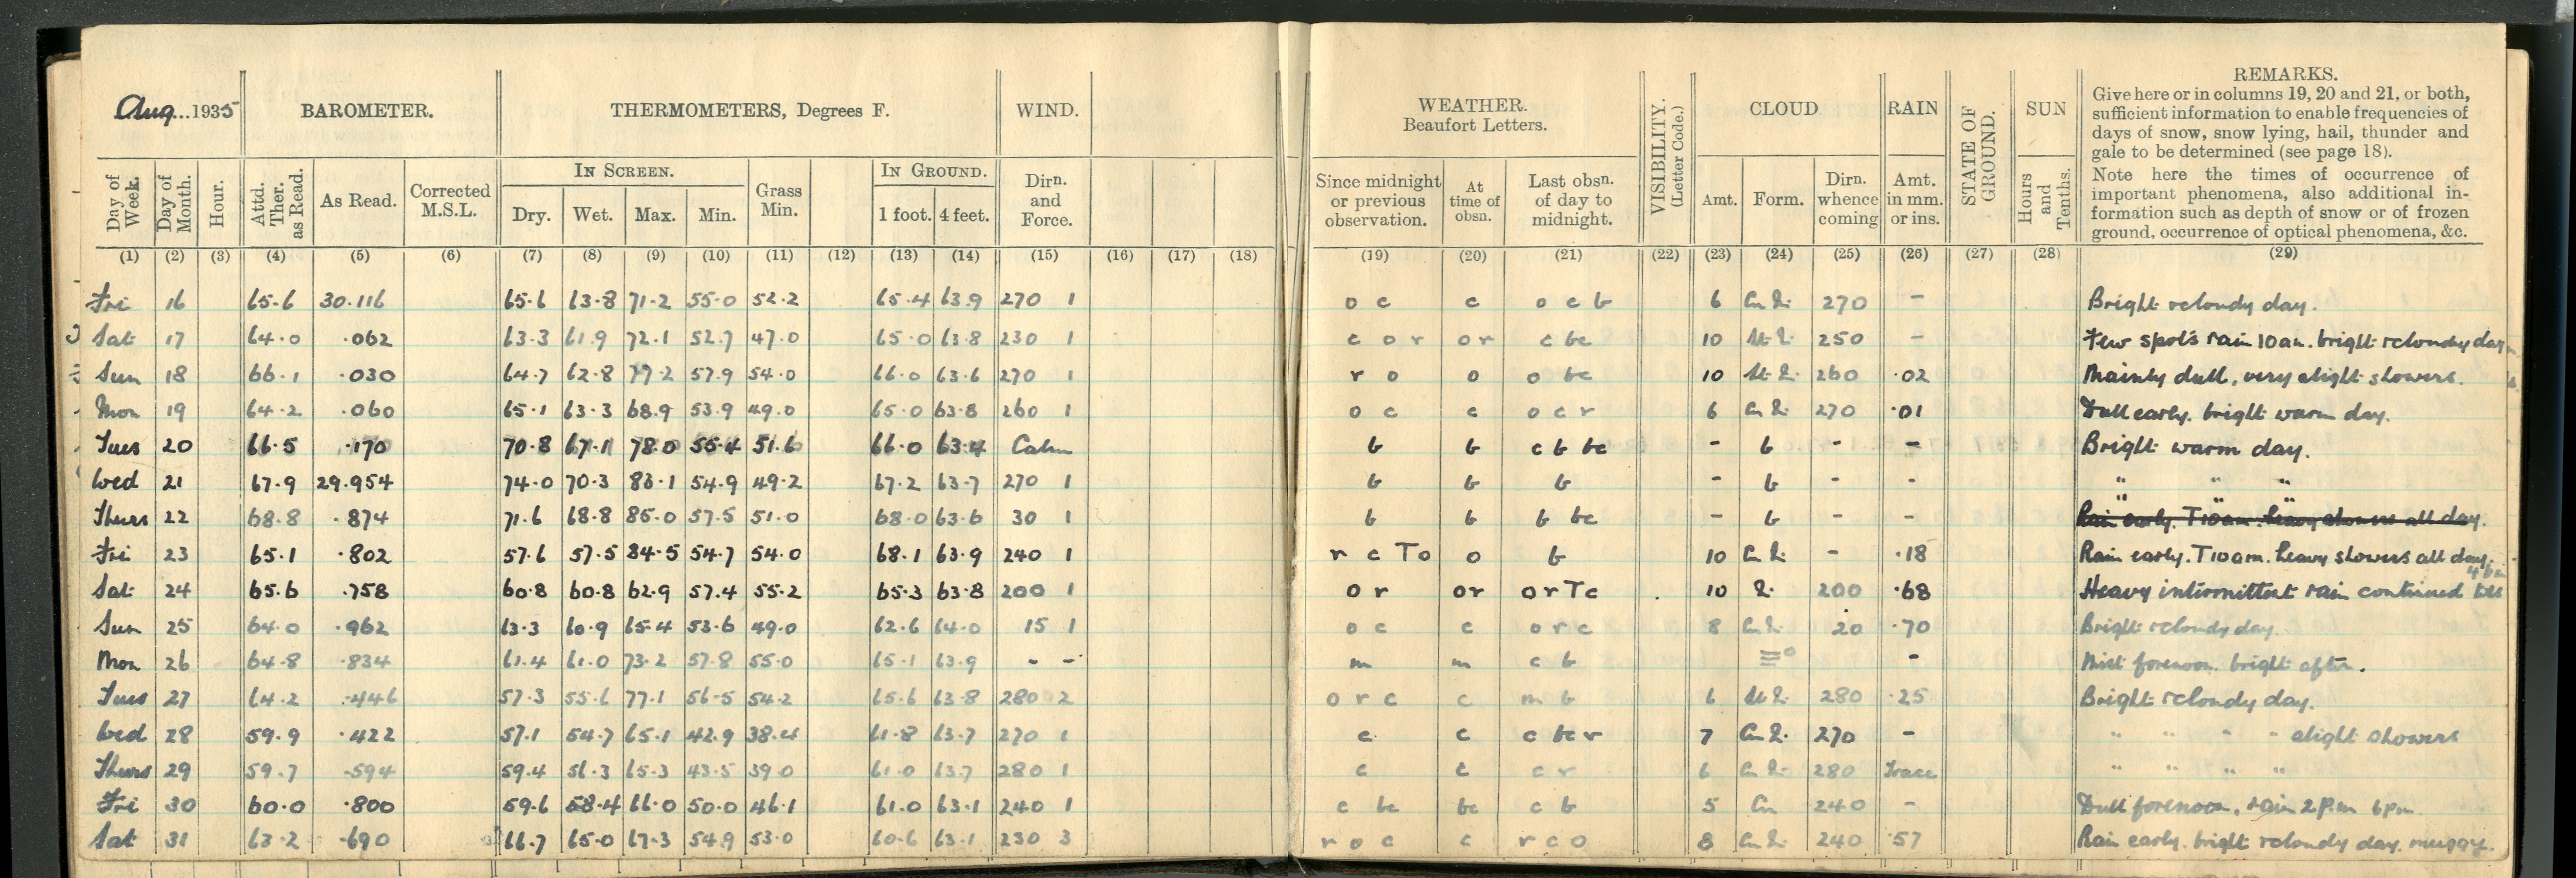 Aug...1935 BAROMETER. THERMOMETERS, Degrees F. WIND. WEATHER. Beaufort Letters. VISIBILITY. (Letter Code.) CLOUD RAIN STATE OF GROUND. SUN REMARKS.
Give here or in columns 19, 20 and 21, or both,
sufficient information to enable frequencies of
days of snow, snow lying, hail, thunder and
gale to be determined (see page 18).
Note here the times of occurrence of
important phenomena, also additional in-
formation such as depth of snow or of frozen
ground, occurrence of optical phenomena, &c.
Day of Week. Day of Month. Hour. Attd. Ther. as Read. As Read. Corrected M.S.L. IN SCREEN. Dry. Wet. Max. Min. Grass Min. IN GROUND. 1 foot. 4 feet. Dirn. and Force. Since midnight or previous observation. At time of obsn. Last obsn. of day to midnight. Amt. Form. Dirn. whence coming Amt. in mm. or ins. Hours and Tenths.
(1) (2) (3) (4) (5) (6) (7) (8) (9) (10) (11) (12) (13) (14) (15) (16) (17) (18) (19) (20) (21) (22) (23) (24) (25) (26) (27) (28) (29)
Fri 16 65.6 30.116 65.6 63.8 71.2 55.0 52.2 65.4 63.9 270 1 o c c o c b 6 270 - Bright cloudy day.
Sat 17 64.0 .062 63.3 61.9 72.1 52.7 47.0 65.0 63.8 230 1 c o r o r c bc 10 250 - Few spots rain 10am. bright cloudy day
Sun 18 66.1 .030 64.7 62.8 62.8 57.9 54.0 66.0 63.6 270 1 r o o o bc 10 260 .02 Mainly dull, very slight showers.
Mon 19 64.2 .060 65.1 63.3 68.9 53.9 49.0 65.0 63.8 260 1 o c c o c r 6 270 .01 Dull early. bright warm day.
Tues 20 66.5 .170 70.8 67.1 78.0 55.4 51.6 66.0 63.4 Calm b b c b bc - b - - Bright warm day.
Wed 21 67.9 29.954 74.0 70.3 83.1 54.9 49.2 67.2 63.7 270 1 b b b - b - - " " "
Thurs 22 68.8 .874 71.6 68.8 85.0 57.5 51.0 68.0 63.6 30 1 b b b bc - b - - " " " Rain early. T 10am. heavy showers all day.
Fri 23 65.1 .802 57.6 57.5 84.5 54.7 54.0 68.1 63.9 240 1 r c To o b 10 - .18 Rain early. T 10am. heavy showers all day.
Sat 24 65.6 .758 60.8 60.8 62.9 57.4 55.2 65.3 63.8 200 1 o r o r o r T c 10 200 .68 Heavy intermittent rain continued till
Sun 25 64.0 .962 63.3 60.9 65.4 53.6 49.0 62.6 64.0 15 1 o c c o r c 8 20 .70 Bright cloudy day
Mon 26 64.8 .834 61.4 61.0 73.2 57.8 55.0 65.1 63.9 - - m m c b ≡° - Mist forenoon. bright after.
Tues 27 64.2 .446 57.3 55.6 77.1 56.5 54.2 65.6 63.8 280 2 o r c c m b 6 280 .25 Bright cloudy day.
Wed 28 59.9 .422 57.1 54.7 65.1 42.9 38.4 61.8 63.7 270 1 c c c bc r 7 270 - " " " " slight showers
Thurs 29 59.7 .594 59.4 56.3 65.3 43.5 39.0 61.0 63.7 280 1 c c c r 6 280 Trace " " " "
Fri 30 60.0 .800 59.6 58.4 66.0 50.0 46.1 61.0 63.1 240 1 c bc bc c b 5 Cu 240 - Dull forenoon, rain 2 p.m 6 pm.
Sat 31 63.2 .690 66.7 65.0 67.3 54.9 53.0 60.6 63.1 230 3 r o c c r c o 8 240 .57 Rain early. bright cloudy day. muggy.